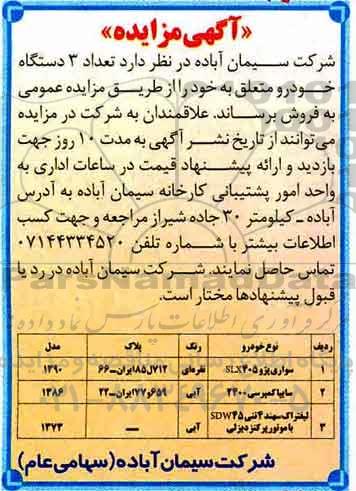 «آگهی مزایده»
شرکت سیمان آباده در نظر دارد تعداد ۳ دستگاه
خودرو متعلق به خود را از طریق مزایده عمومی
به فروش برساند. علاقمندان به شرکت در مزایده
می‌توانند از تاریخ نشر آگهی به مدت ۱۰ روز جهت
بازدید و ارائه پیشنهاد قیمت در ساعات اداری به
واحد امور پشتیبانی کارخانه سیمان آباده به آدرس
آباده ـ کیلومتر ۳۰ جاده شیراز مراجعه و جهت کسب
اطلاعات بیشتر با شماره تلفن ۰۷۱۴۴۳۳۴۵۲۰
تماس حاصل نمایند. شرکت سیمان آباده در رد یا
قبول پیشنهادها مختار است.
ردیف نوع خودرو رنگ پلاک مدل
۱ سواری پژو ۴۰۵ SLX نقره‌ای ۷۱۲ل۱۸۵ایران-۶۶ ۱۳۹۰
۲ سایپا کمپرسی ۲۴۰۰ آبی ۶۵۹و۱۷۷ایران-۲۳ ۱۳۸۶
۳ لیفتراک سهند ۴ تنی SDW۴۵ با موتور پرکنز دیزلی آبی — ۱۳۷۳
شرکت سیمان آباده (سهامی عام)